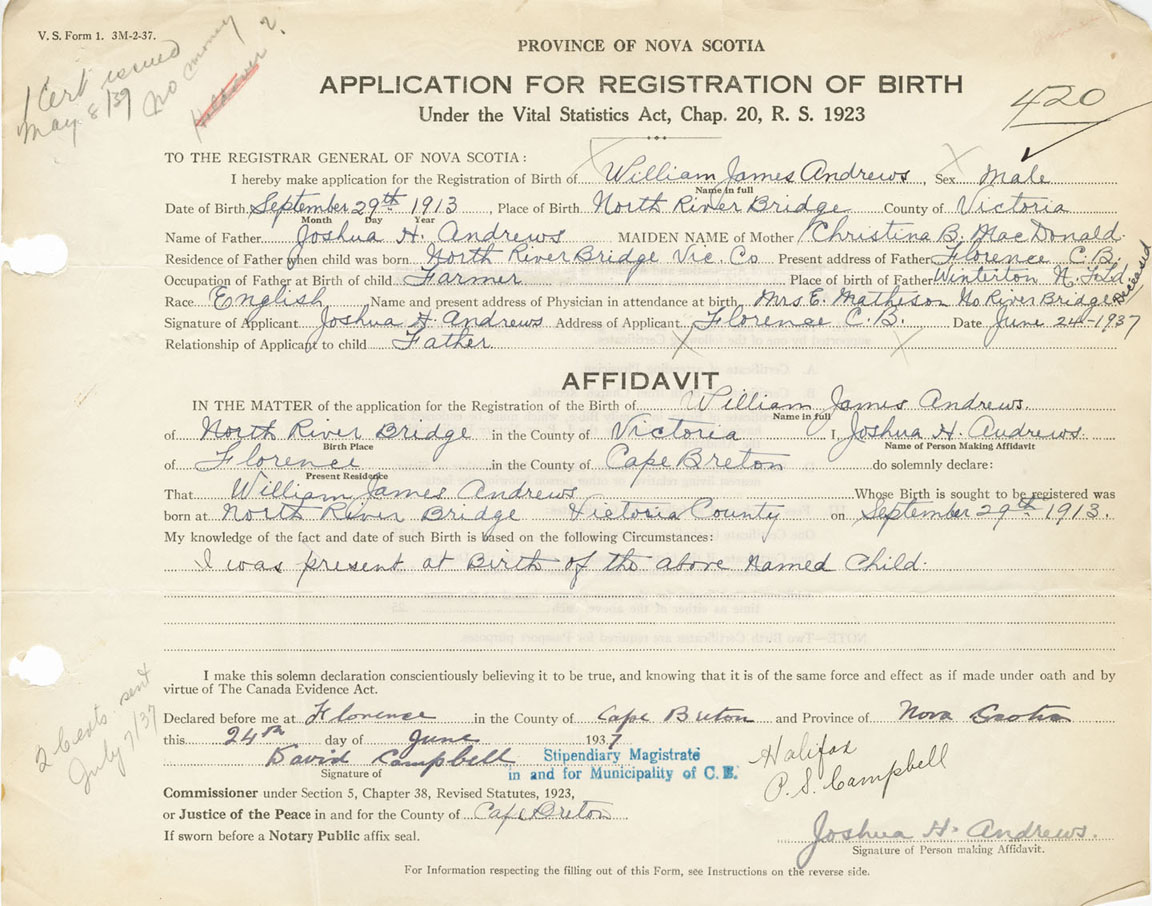 V. S. Form 1. 3M-2-37.
1 Cert issued
May 8/39 No money
2.
420
PROVINCE OF NOVA SCOTIA
APPLICATION FOR REGISTRATION OF BIRTH
Under the Vital Statistics Act, Chap. 20, R. S. 1923
TO THE REGISTRAR GENERAL OF NOVA SCOTIA:
I hereby make application for the Registration of Birth of William James Andrews, Sex Male
Name in full
Date of Birth September 29th 1913, Place of Birth North River Bridge County of Victoria
Month Day Year
Name of Father Joshua H. Andrews MAIDEN NAME of Mother Christina B. MacDonald.
Residence of Father when child was born North River Bridge Vic. Co Present address of Father Florence C.B.
Occupation of Father at Birth of child Farmer Place of birth of Father Winterton N.F.L'd
Race English Name and present address of Physician in attendance at birth Mrs E. Matheson No River Bridge Deceased
Signature of Applicant Joshua H. Andrews Address of Applicant Florence C.B. Date June 24-1937
Relationship of Applicant to child Father
AFFIDAVIT
IN THE MATTER of the application for the Registration of the Birth of William James Andrews.
Name in full
of North River Bridge in the County of Victoria I, Joshua H. Andrews.
Birth Place Name of Person Making Affidavit
of Florence in the County of Cape Breton do solemnly declare:
Present Residence
That William James Andrews Whose Birth is sought to be registered was
born at North River Bridge Victoria County on September 29th 1913.
My knowledge of the fact and date of such Birth is based on the following Circumstances:
I was present at Birth of the above Named Child.
I make this solemn declaration conscientiously believing it to be true, and knowing that it is of the same force and effect as if made under oath and by
virtue of The Canada Evidence Act.
2 Certs. sent
July 7/37
Declared before me at Florence in the County of Cape Breton and Province of Nova Scotia
this 24th day of June 1937
David Campbell Stipendiary Magistrate
Signature of in and for Municipality of C. B.
Halifax
P. S. Campbell
Commissioner under Section 5, Chapter 38, Revised Statutes, 1923,
or Justice of the Peace in and for the County of Cape Breton
If sworn before a Notary Public affix seal.
Joshua H. Andrews.
Signature of Person making Affidavit.
For Information respecting the filling out of this Form, see Instructions on the reverse side.